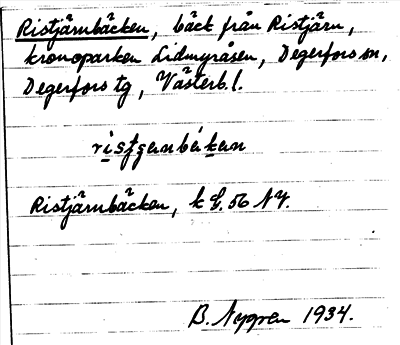 Ristjärnbäcken, bäck från Ristjärn,
kronoparken Lidmyråsen, Degerfors sn,
Degerfors tg, Västerb.l.
Ristjärnbäcken, k G. 56 NV.
B. Nygren 1934.